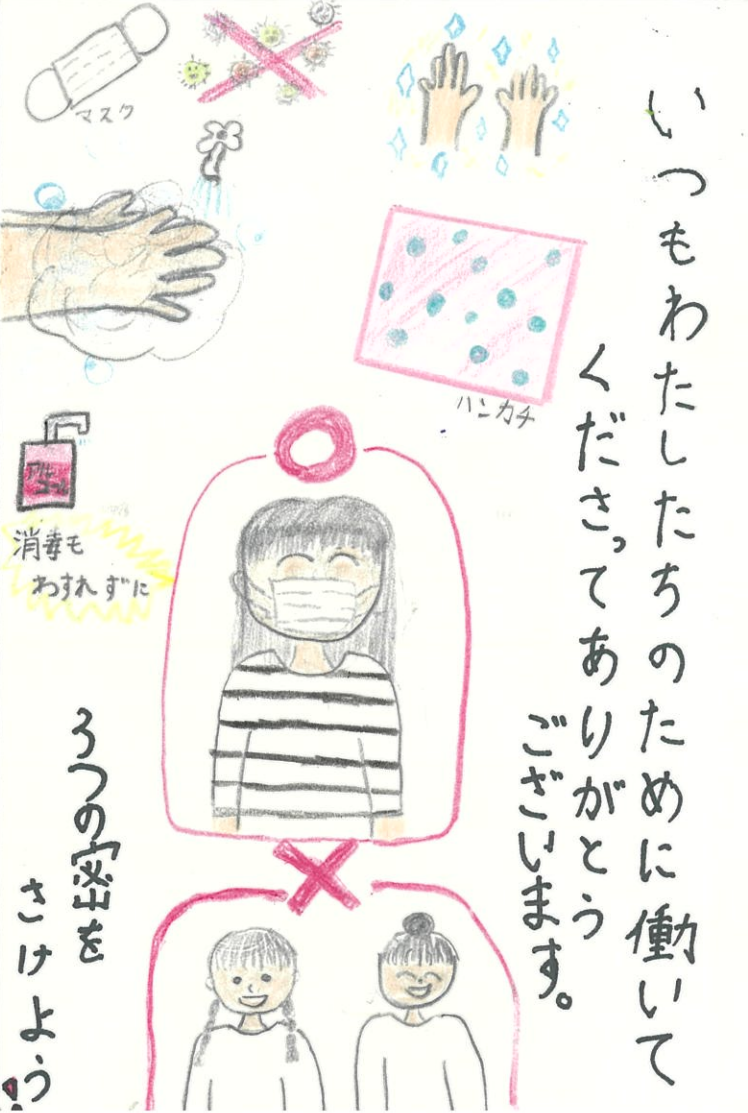 いつもわたしたちのために働いて
くださってありがとう
ございます。
マスク
ハンカチ
アルコール
消毒も
わすれずに
3つの密を
さけよう!